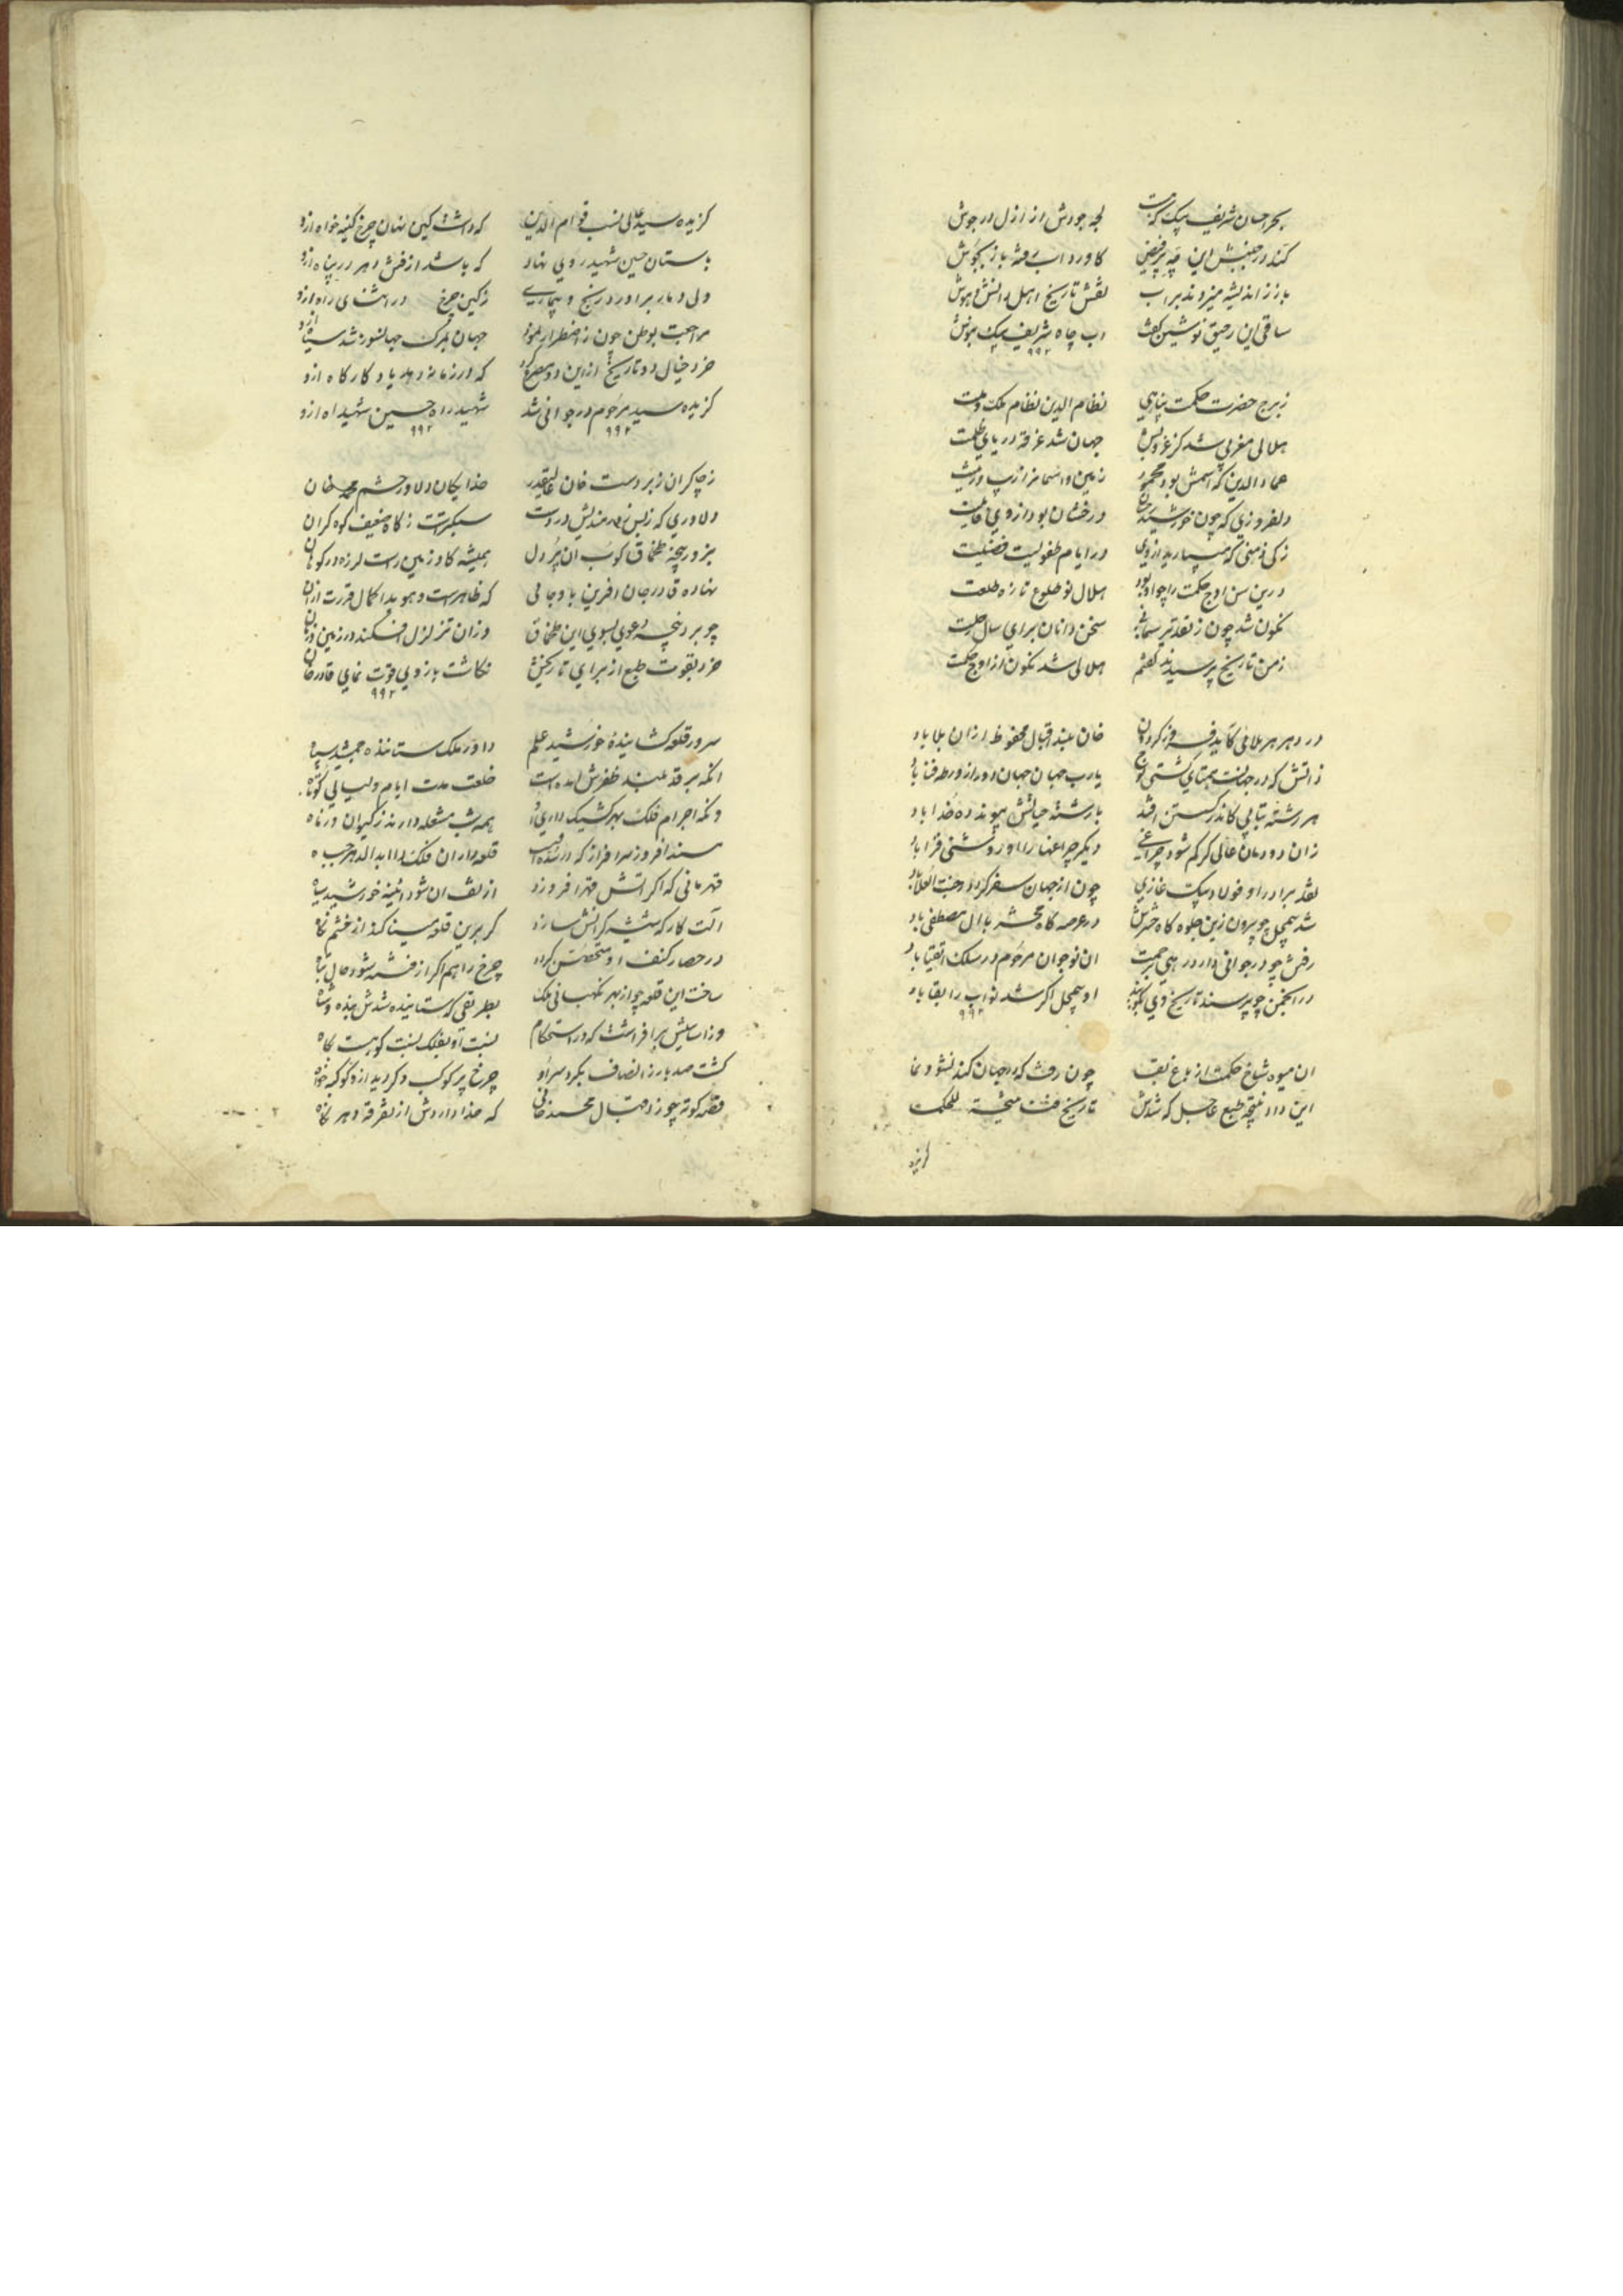 بحر احسان شریف بیک که هست لجه جودش از ازل در جوش
کند در جنبش این چه پرفیض کاورد آب رفته باز بجوش
باز ز اندیشه میزدند بر آب نقش تاریخ اهل دانش و هوش
ساقی این رحیق نوشین گفت آب چاه شریف بیک بنوش
۹۹۲
ز برج حضرت حکمت پناهی نظام الدین نظام ملک و ملت
هلالی مغربی شد کز غروبش جهان شد غرقه دریای ظلمت
عماد الدین که اسمش بود محمود زمین و آسمانرا زیب و زینت
دلفروزی که چون خورشید رخشان درخشان بود از روی
زکی ذهنی که میبارید از وی در ایام طفولیت فضیلت
درین سن اوج حکمت را چو او بود هلال نو طلوع تازه طلعت
نگون شد چون ز تقدیر سخن دانان برای سال رحلت
ز من تاریخ پرسیدند گفتم هلالی شد نگون از اوج حکمت
در دهر هر بلائی کاید فرو ز گردون خان بلند اقبال محفوظ از آن بلا باد
ذاتش که در جهانست همتای کشتی نوح یارب جهان جهان دور از ورطه فنا باد
هر رشته کاندر گسستن افتد با رشته حیاتش پیوند ده خدا باد
زان دودمان عالی گر کم شود چراغی دیگر چراغها را او روشنی فزا باد
نقد برادر او فولاد بیک غازی چون از جهان سفر کرد در جنت العلا باد
شد همچل چو بیرون زین جلوه گاه در عرصه گاه محشر با آل مصطفی باد
رفتن چو در جوانی دارد رهی بحیرت آن نوجوان مرحوم در سلک اتقیا باد
در انجمن چو پرسند تاریخ وی بگویند او همچل اگر شد نواب را بقا باد
۹۹۲
آن میوه شاخ حکمت از باغ بقا چون رفت که در جهان کند نشو و نما
این داد نتیجه طبع عاجل که شدش تاریخ نتیجة للحکمت
گزیده
گزیده سید عالی نسب قوام الدین که داشت کین نهان چرخ کینه خواه ازو
باستان حسین شهید روی نهاد که باشد از دهر در پناه ازو
ولی دمار برآورد رنج و بیماری ز کین چرخ در اثنای راه ازو
مراجعت بوطن چون ز اضطرار نمود جهان بمرگ جهانسوز شد سیاه ازو
خرد خیال دو تاریخ ازین دو مصرع کرد که در زمانه دهد یاد گاه گاه ازو
گزیده سید مرحوم در جوانی شد شهید راه حسین شهید آه ازو
۹۹۲ ۹۹۲
ز چاکران زبردست خان عالیقدر خدایگان دلاور حشم محمد خان
دلاوری که ز بس زورمندیش در دست سبکترست ز کاه ضعیف کوه گران
بزور پنجه طخماق کوب آن پر دل همیشه گاو زمین راست لرزه در کوهان
نهاده قادر جان آفرین بازوجائی که ظاهرست و هویدا کمال قدرت ازان
چو برد پنجه دعوی بسوی این طخماق وزان تزلزل افکند در زمین و زمان
خرد بقوت طبع از برای تاریخش نگاشت بازوی قوت نمای قادر خان
۹۹۲
سرور قلعه گشاینده خورشید علم داور ملک ستاننده جمشید سپاه
آنکه بر قد بلند ظفرش آمده است خلعت مدت ایام و لیالی کوتاه
وانکه اجرام فلک بهر کشیک داری او همه شب مشعله دارند ز کیوان در ماه
مسند افروز سرافراز که قلعه داران فلک را ابد الدهر
قهرمانی که اگر آتش قهر افروزد از تف آن شود آئینه خورشید سیاه
آلت کارگه شیشه گرانش سازد گر برین قلعه مینا کند از خشم نگاه
در حصار کنف او متحصن گردد چرخ را هم اگر از فتنه شود حال تباه
ساخت این قلعه چو از بهر نگهبانی ملک بطریقی که ستاینده شدش بنده و شاه
وز اساسیش برافراشت که در استحکام نسبت او بفلک نسبت کوهست بکاه
گشت صد بار ز انصاف بگرد سر او چرخ پر کوکب و گردید ازو کوکبه خواه
قصه کوته چو ز اقبال محمد خانی که خدا داردش از تفرقه دهر نگاه